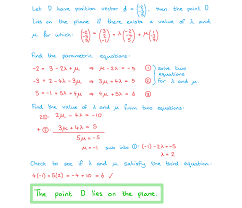 Let D have position vector d = (-2 -3 5), then the point D
lies on the plane if there exists a value of λ and
μ for which: (-2 -3 5) = (3 3 -1) + λ(-2 -4 5) + μ(1 -3 4)
Find the parametric equations:
-2 = 3 - 2λ + μ ⇒ μ - 2λ = -5 ① solve two
-3 = 3 - 4λ - 3μ ⇒ 3μ + 4λ = 5 ② equations
5 = -1 + 5λ + 4μ ⇒ 4μ + 5λ = 6 ③ for λ and μ
Find the value of λ and μ from two equations:
2① 2μ - 4λ = -10
+ ② 3μ + 4λ = 5
5μ = -5
μ = -1 sub into ① (-1) - 2λ = -5
λ = 2
Check to see if λ and μ satisfy the third equation:
4(-1) + 5(2) = -4 + 10 = 6 ✓
The point D lies on the plane.